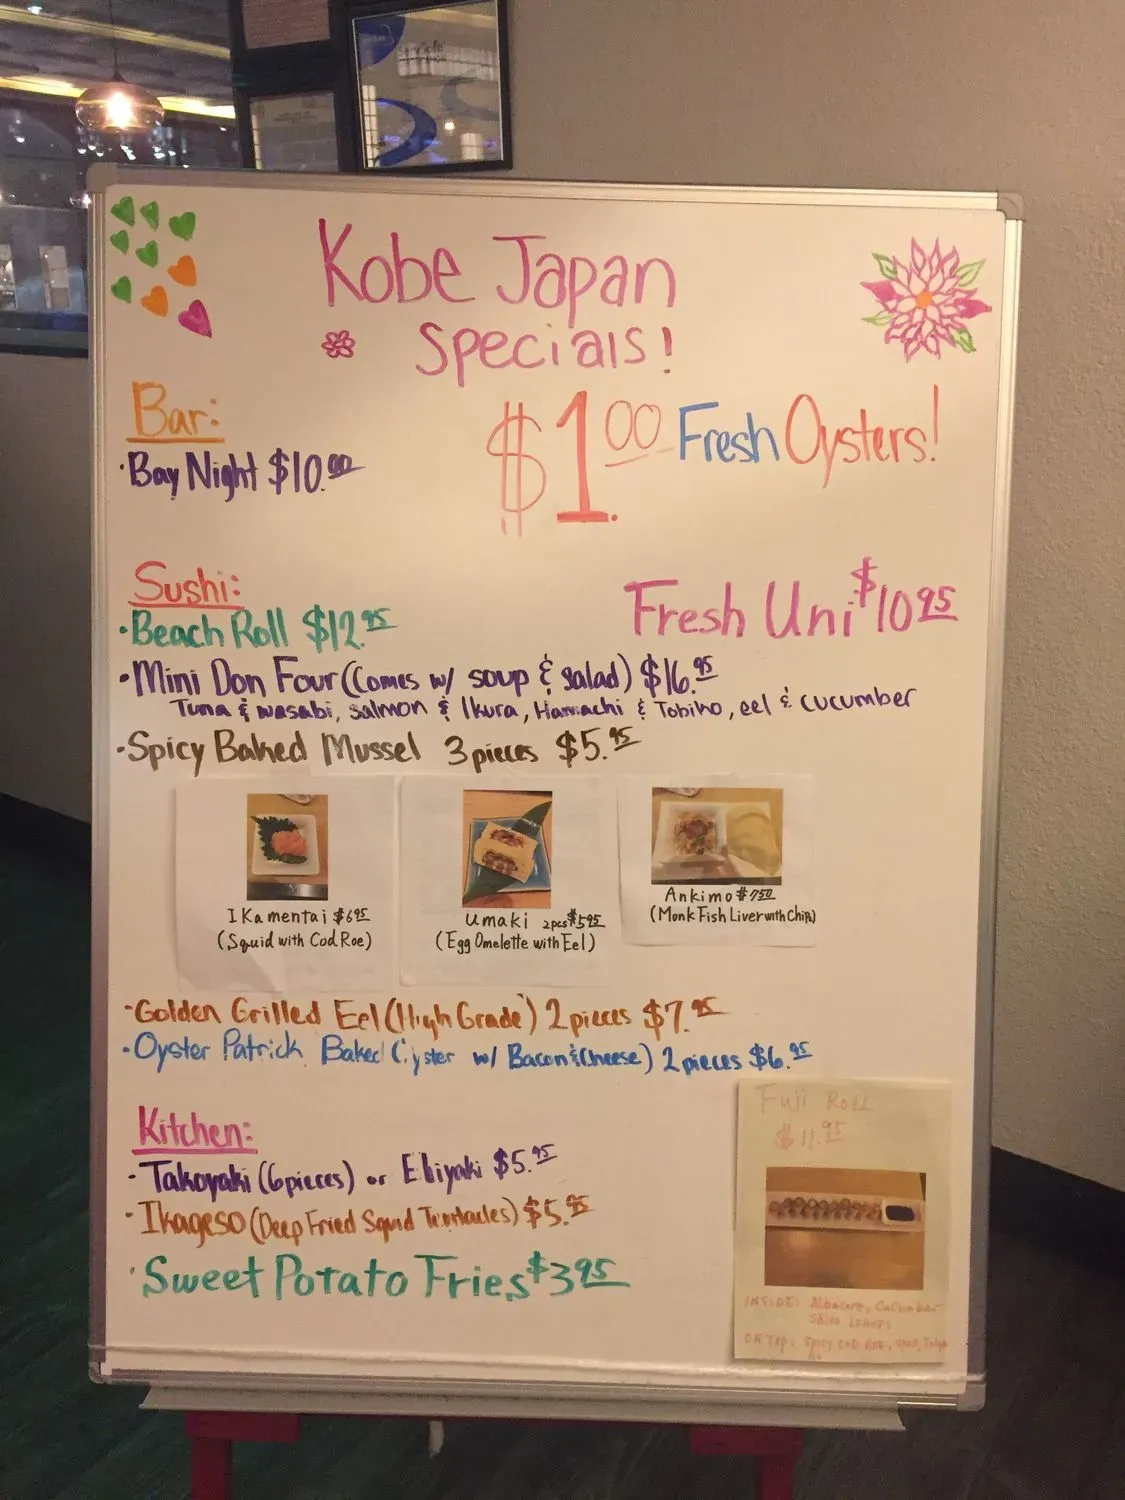 ServSafe
Kobe Japan
Specials!
Bar:
$1.00 Fresh Oysters!
·Bay Night $10.00
Sushi:
Fresh Uni $10.95
·Beach Roll $12.95
·Mini Don Four (Comes w/ soup & salad) $16.95
Tuna & wasabi, salmon & Ikura, Hamachi & Tobiko, eel & cucumber
·Spicy Baked Mussel 3 pieces $5.95
Ikamentai $6.95
(Squid with Cod Roe)
Umaki 2pcs $5.95
(Egg Omelette with Eel)
Ankimo $7.50
(Monk Fish Liver with Chip)
·Golden Grilled Eel (High Grade) 2 pieces $7.95
·Oyster Patrick Baked Oyster w/ Bacon & Cheese) 2 pieces $6.95
Kitchen:
·Takoyaki (6 pieces) or Ebiyaki $5.95
·Ikageso (Deep Fried Squid Tentacles) $5.95
·Sweet Potato Fries $3.95
Fuji Roll
$11.95
INSIDE: Albacore, Cucumber
Shiso LEAVES
ON TOP: Spicy Cod Roe,